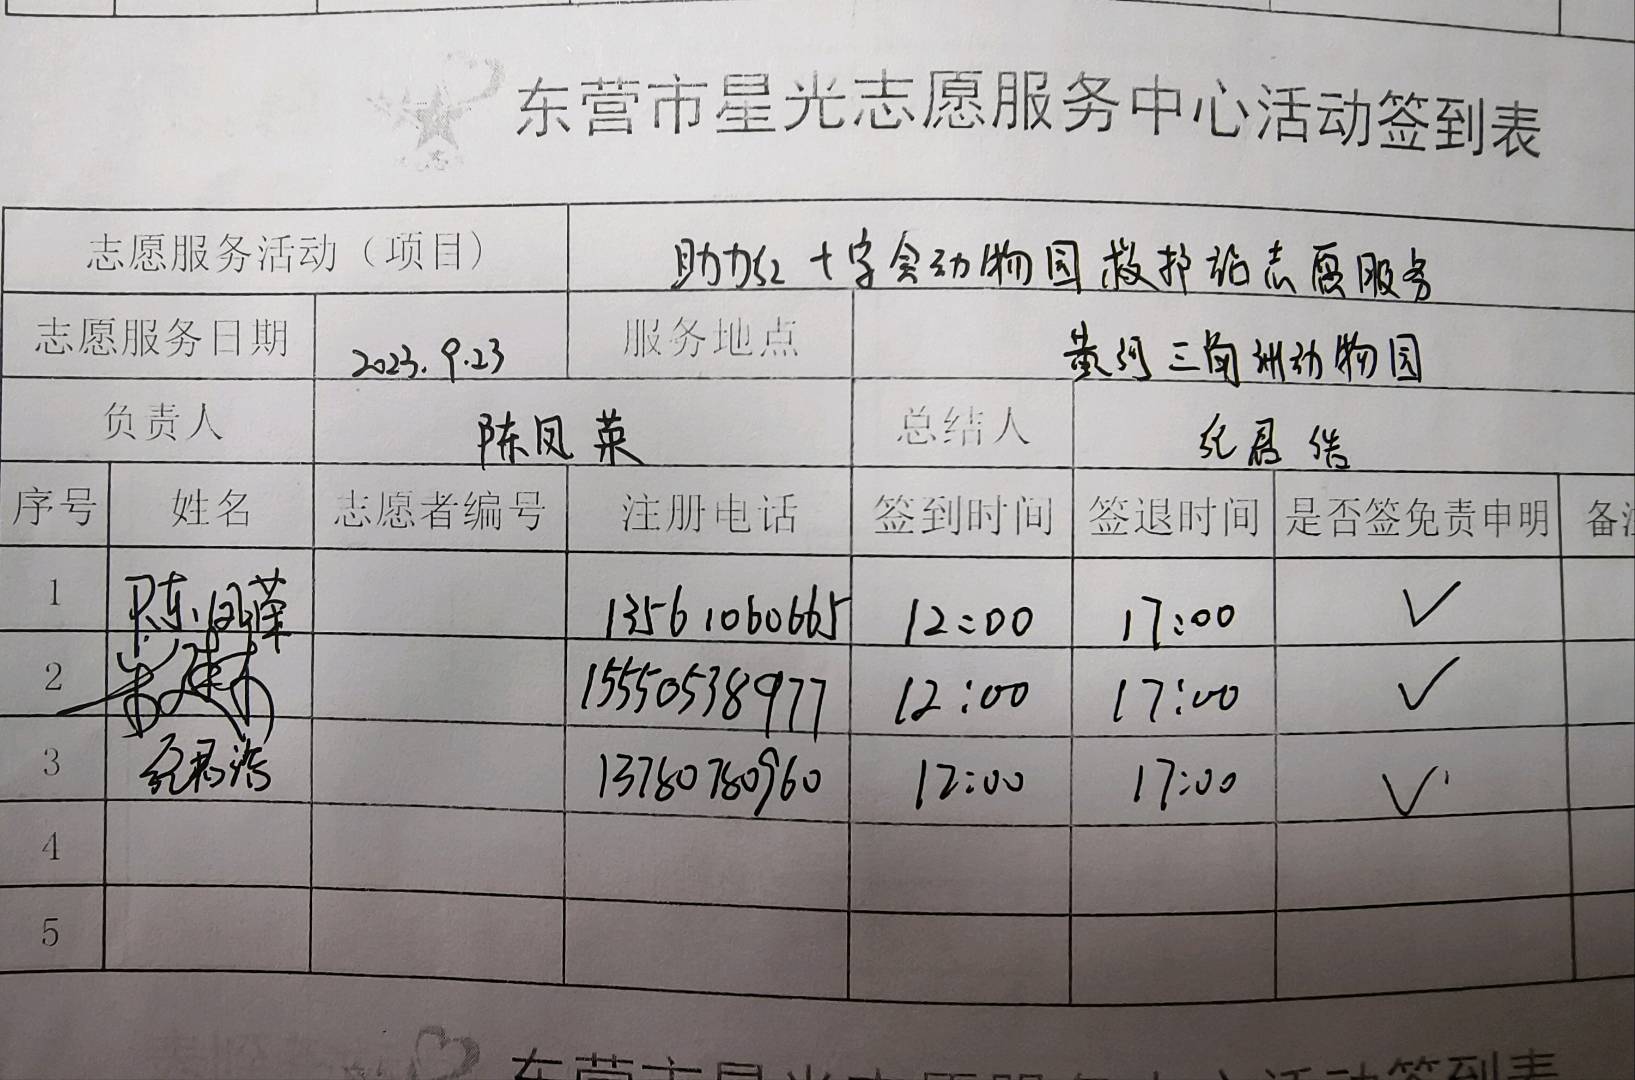 东营市星光志愿服务中心活动签到表
志愿服务活动（项目） 助力红十字会动物园救护站志愿服务
志愿服务日期 2023.9.23 服务地点 黄河三角洲动物园
负责人 陈凤英 总结人 纪君浩
序号 姓名 志愿者编号 注册电话 签到时间 签退时间 是否签免责申明 备注
1 陈凤荣 13561060665 12:00 17:00 ✓
2 15550538977 12:00 17:00 ✓
3 纪君浩 13780780960 12:00 17:00 ✓
4
5
东营市星光志愿服务中心活动签到表